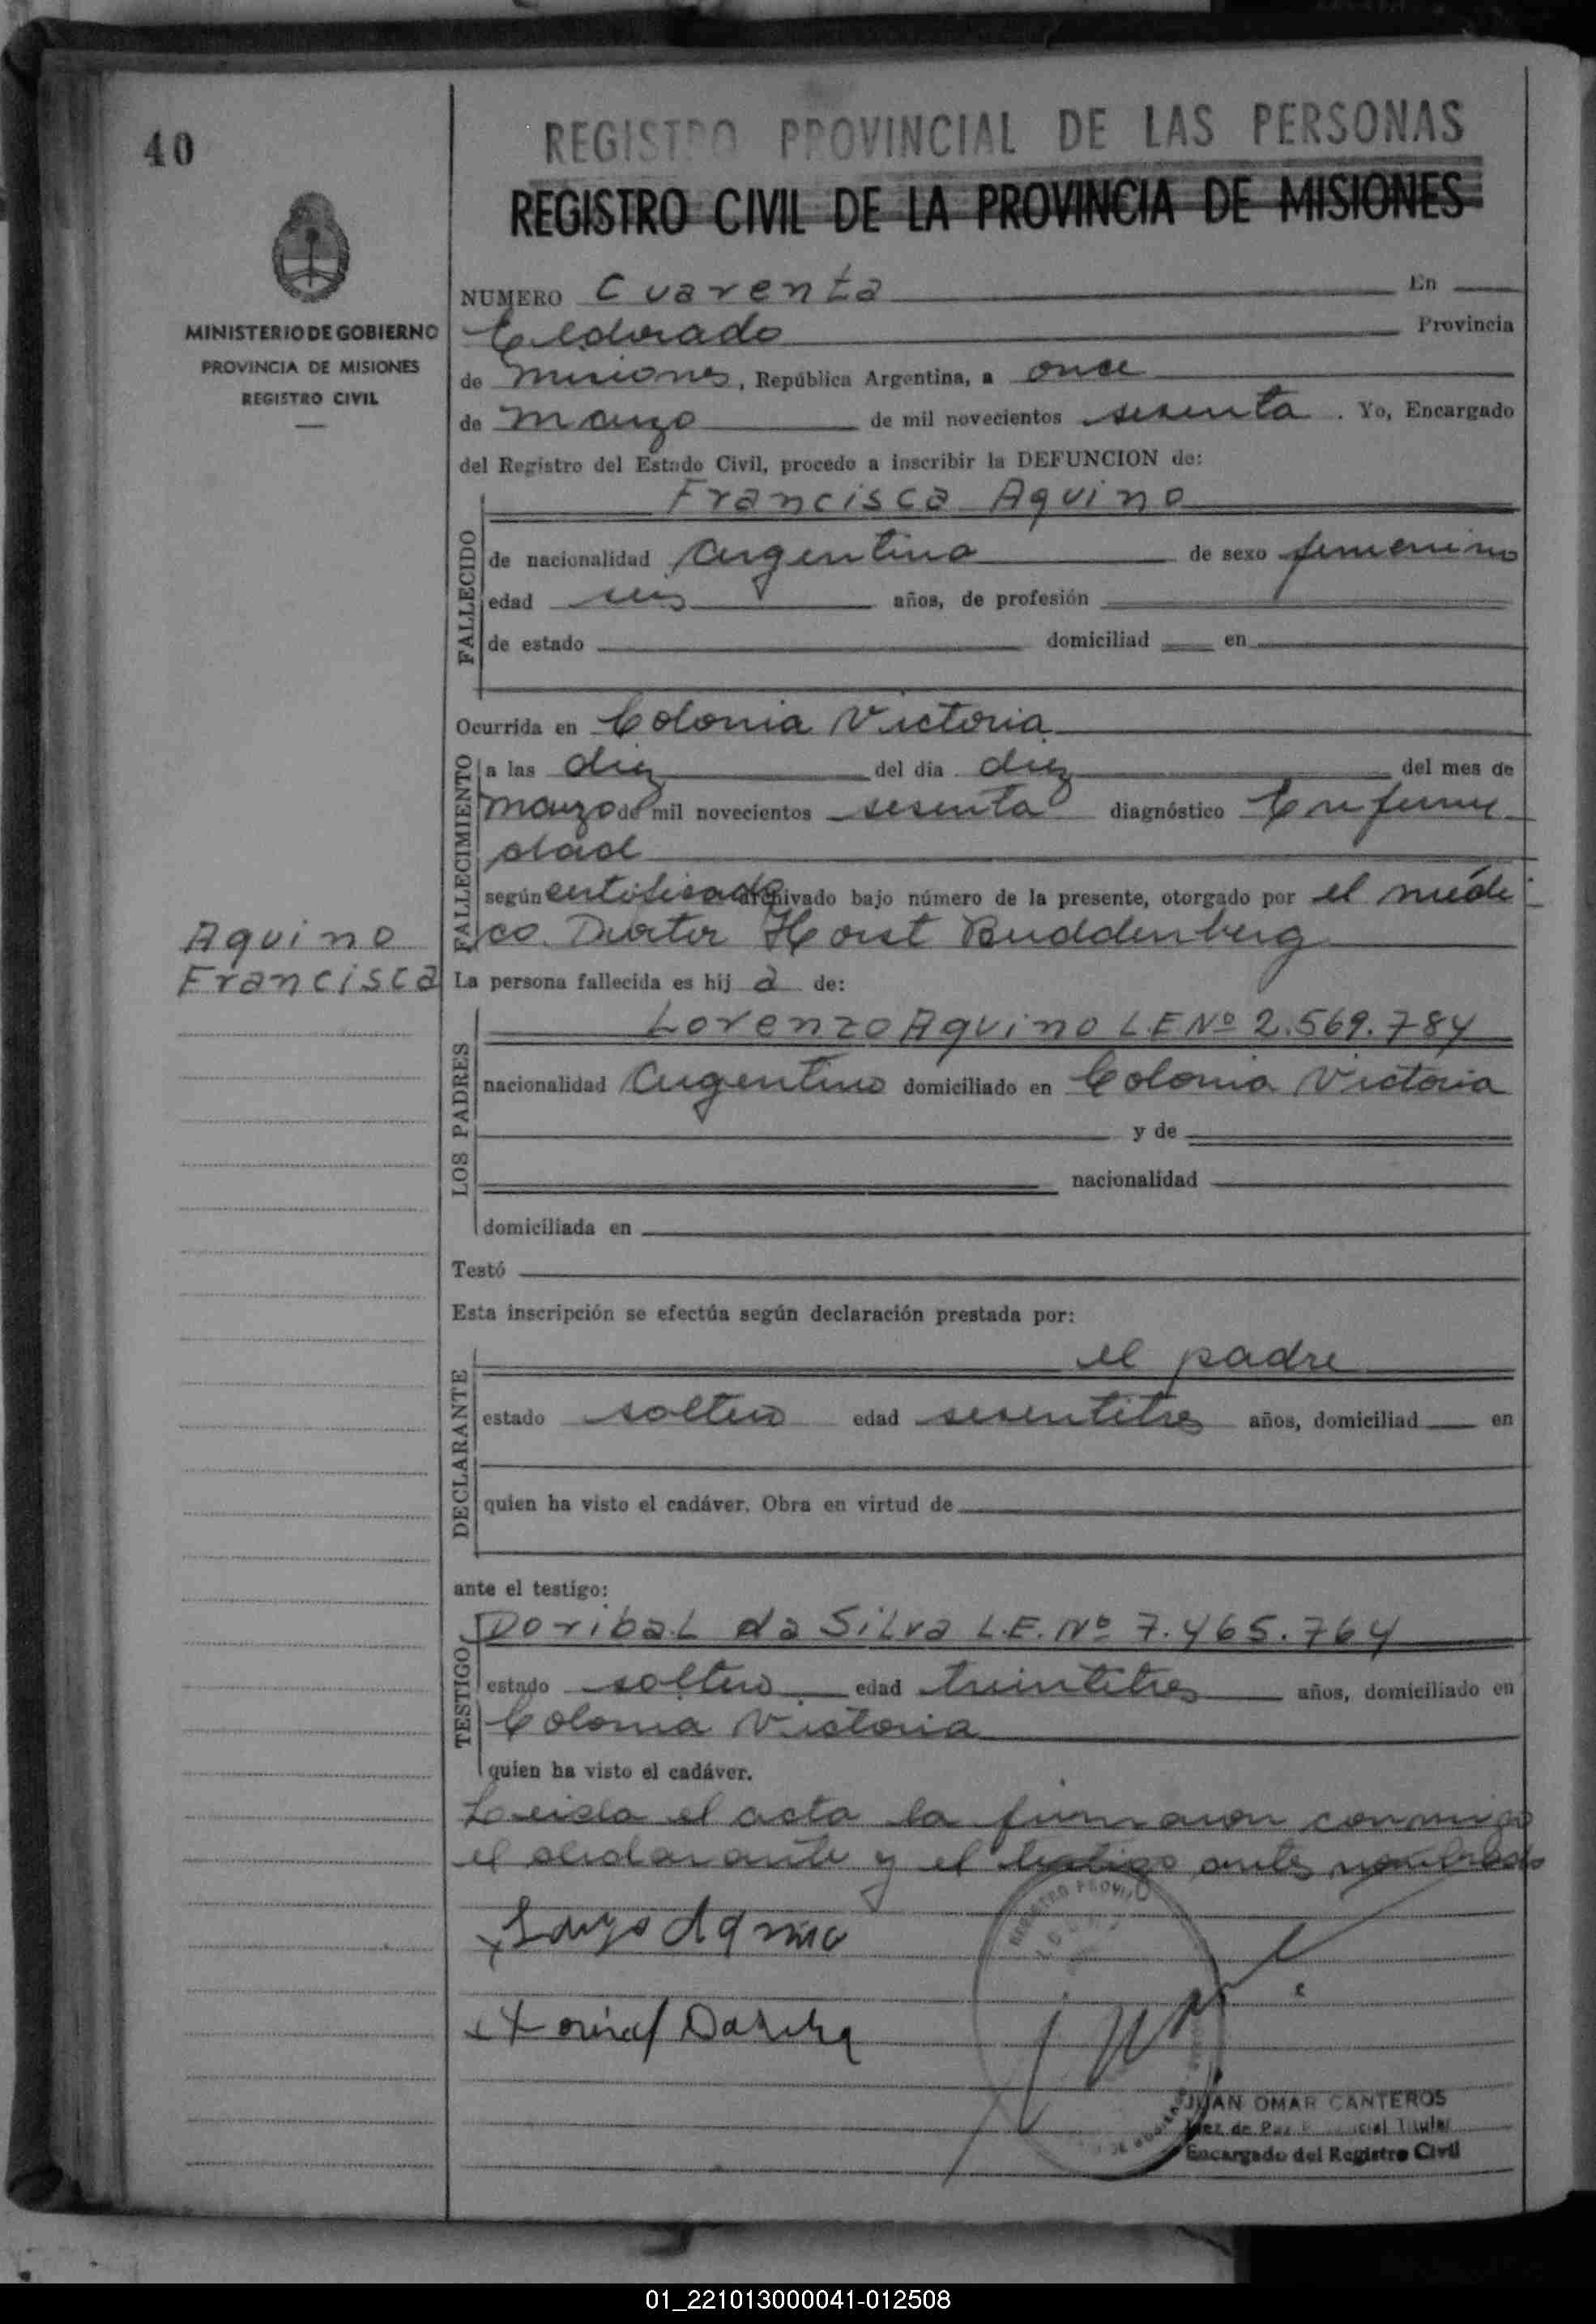 40
MINISTERIO DE GOBIERNO
PROVINCIA DE MISIONES
REGISTRO CIVIL
Aquino
Francisca
REGISTRO PROVINCIAL DE LAS PERSONAS
REGISTRO CIVIL DE LA PROVINCIA DE MISIONES
NUMERO Cuarenta En
Eldorado Provincia
de Misiones, República Argentina, a once
de marzo de mil novecientos sesenta. Yo, Encargado
del Registro del Estado Civil, procedo a inscribir la DEFUNCION de:
FALLECIDO
Francisca Aquino
de nacionalidad argentina de sexo femenino
edad seis años, de profesión
de estado domiciliad en
Ocurrida en Colonia Victoria
FALLECIMIENTO
a las diez del día diez del mes de
marzo de mil novecientos sesenta diagnóstico Enferme
dad
según certificado archivado bajo número de la presente, otorgado por el médi
co Doctor Horst Buddenberg
La persona fallecida es hij a de:
LOS PADRES
Lorenzo Aquino L.E Nº 2.569.784
nacionalidad argentino domiciliado en Colonia Victoria
y de
nacionalidad
domiciliada en
Testó
Esta inscripción se efectúa según declaración prestada por:
DECLARANTE
el padre
estado soltero edad sesentitres años, domiciliad en
quien ha visto el cadáver. Obra en virtud de
ante el testigo:
TESTIGO
Doribal da Silva L.E. Nº 7.465.764
estado soltero edad treintitres años, domiciliado en
Colonia Victoria
quien ha visto el cadáver.
Leida el acta la firmaron conmigo
el declarante y el testigo antes nombrado
JUAN OMAR CANTEROS
Juez de Paz Titular
Encargado del Registro Civil
01_221013000041-012508